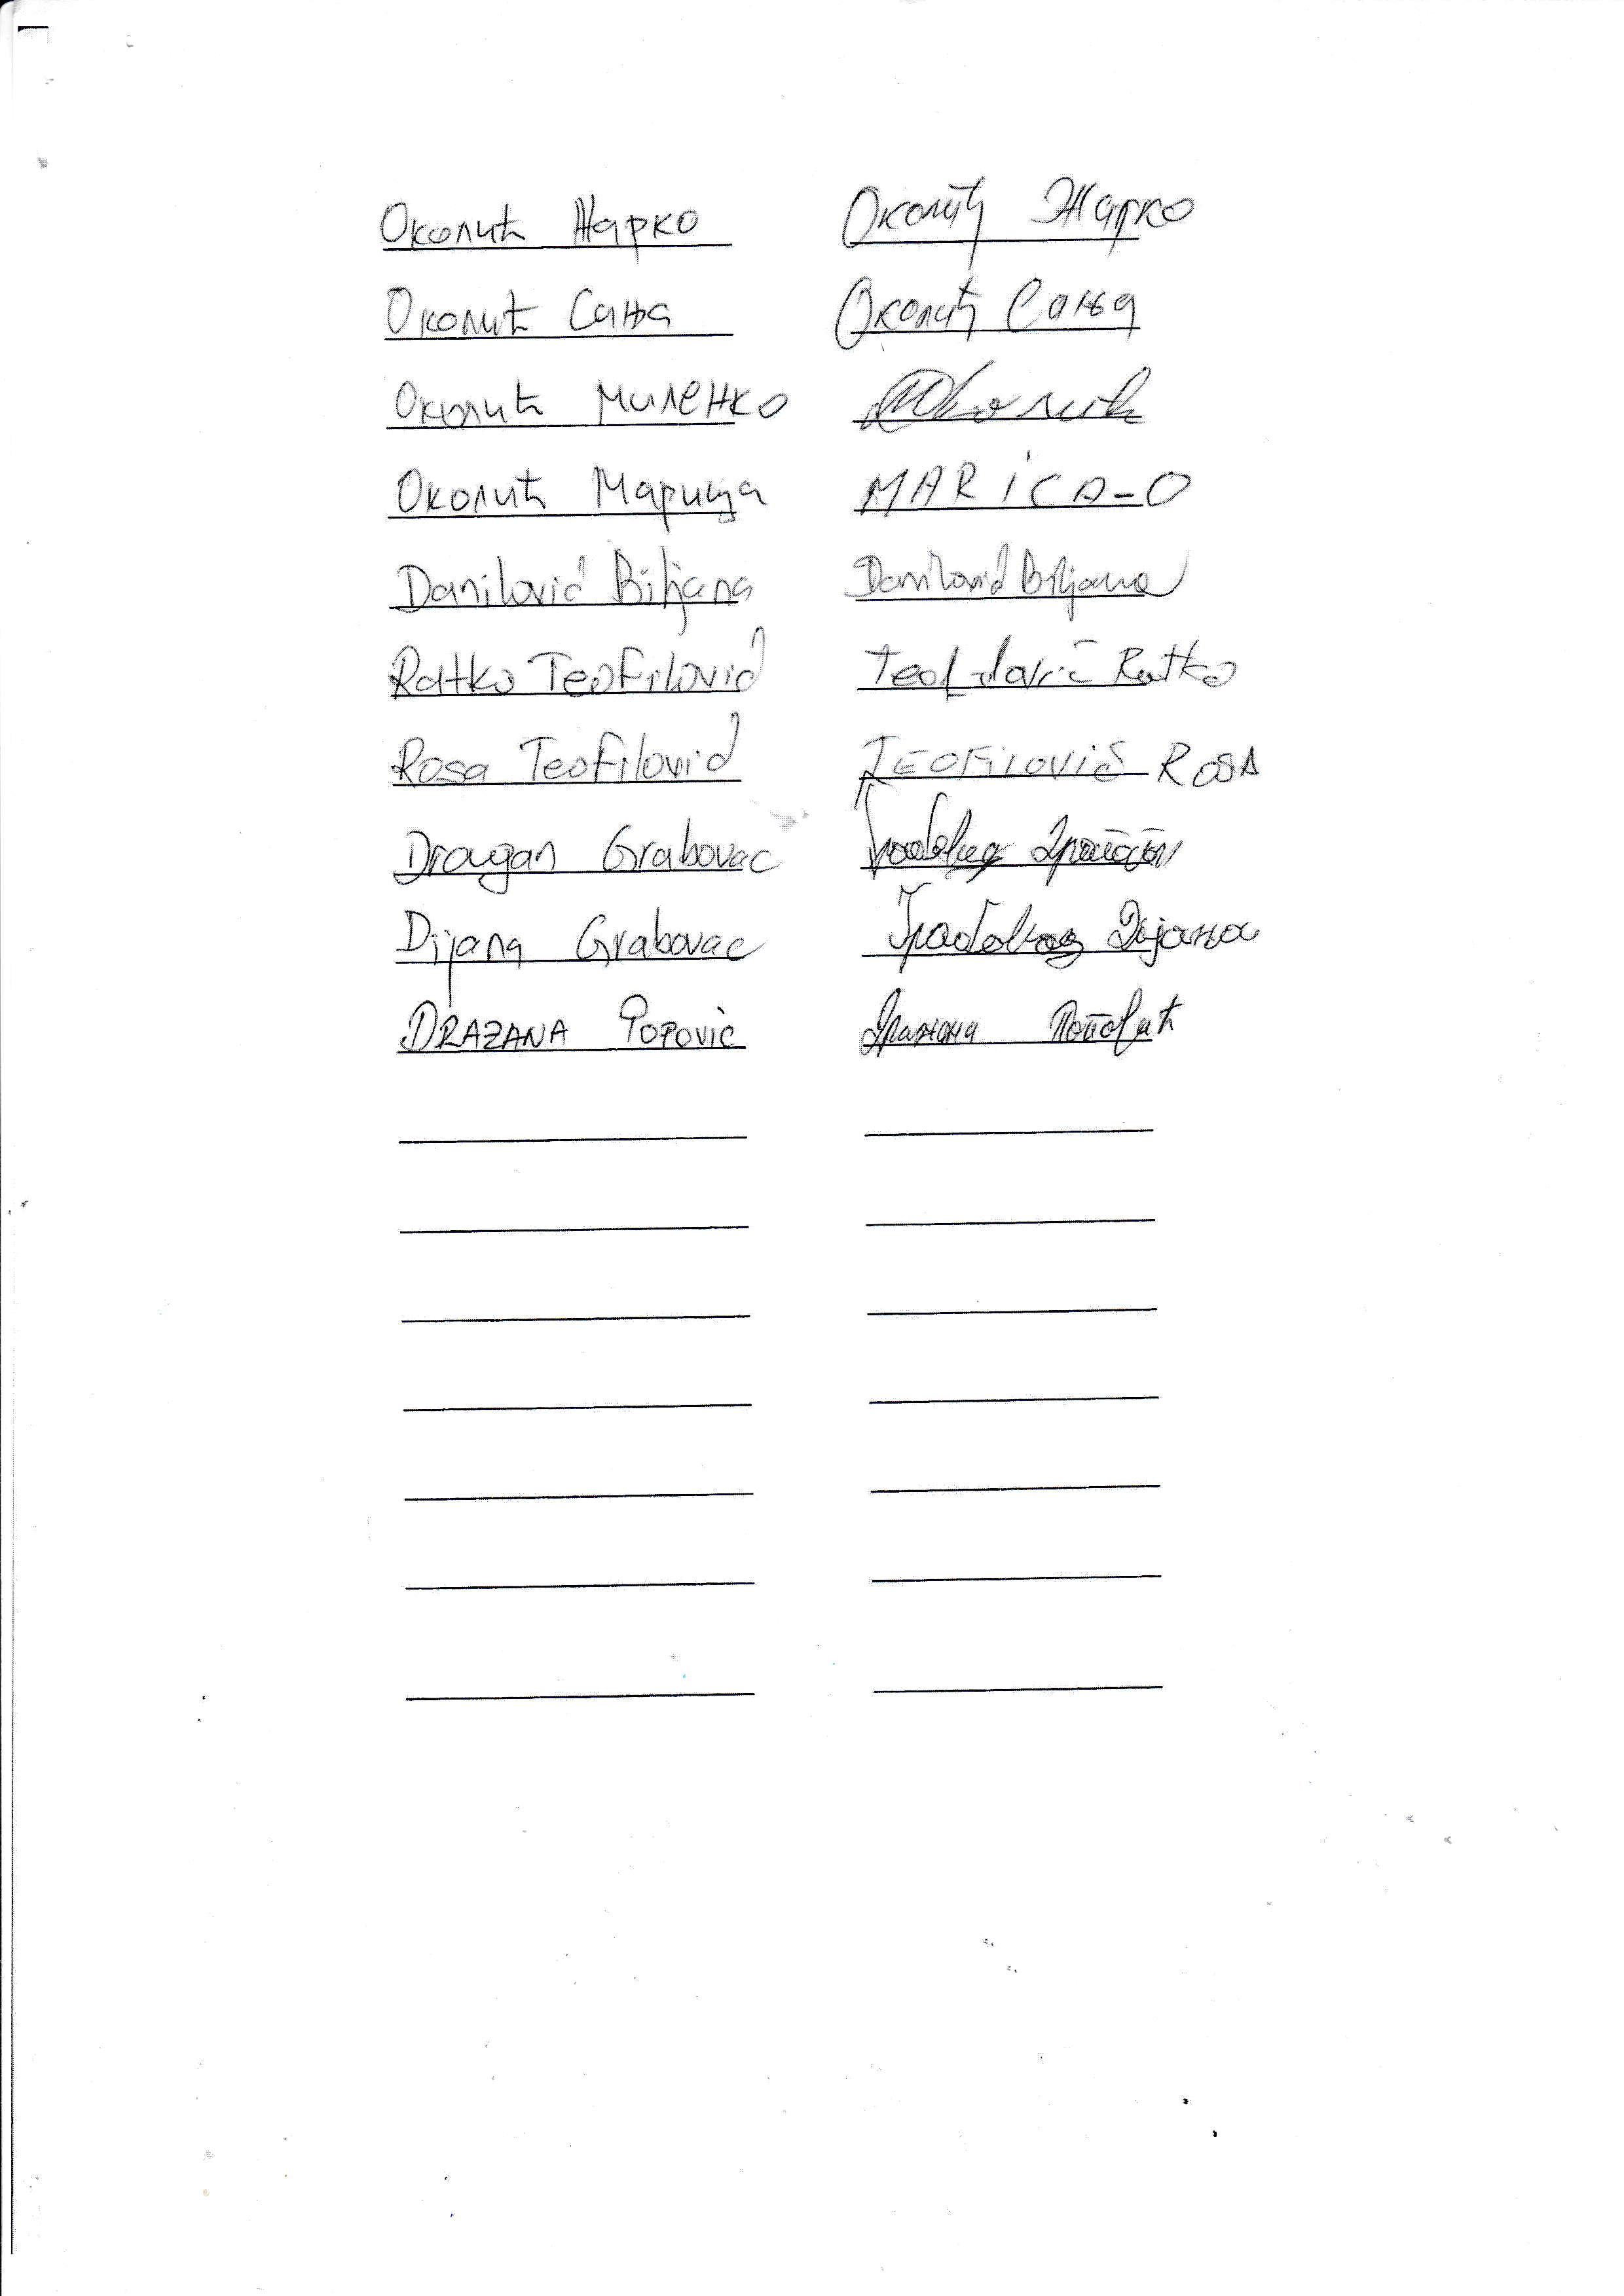 Околић Жарко Околић Жарко
Околић Сања Околић Сања
Околић Миленко Околић
Околић Марица MARICA-O
Danilović Biljana Danilović Biljana
Ratko Teofilović Teofilović Ratko
Rosa Teofilović TEOFILOVIĆ ROSA
Dragan Grabovac Грабовац Драган
Dijana Grabovac Грабовац Дијана
DRAZANA POPOVIC Дражана Поповић